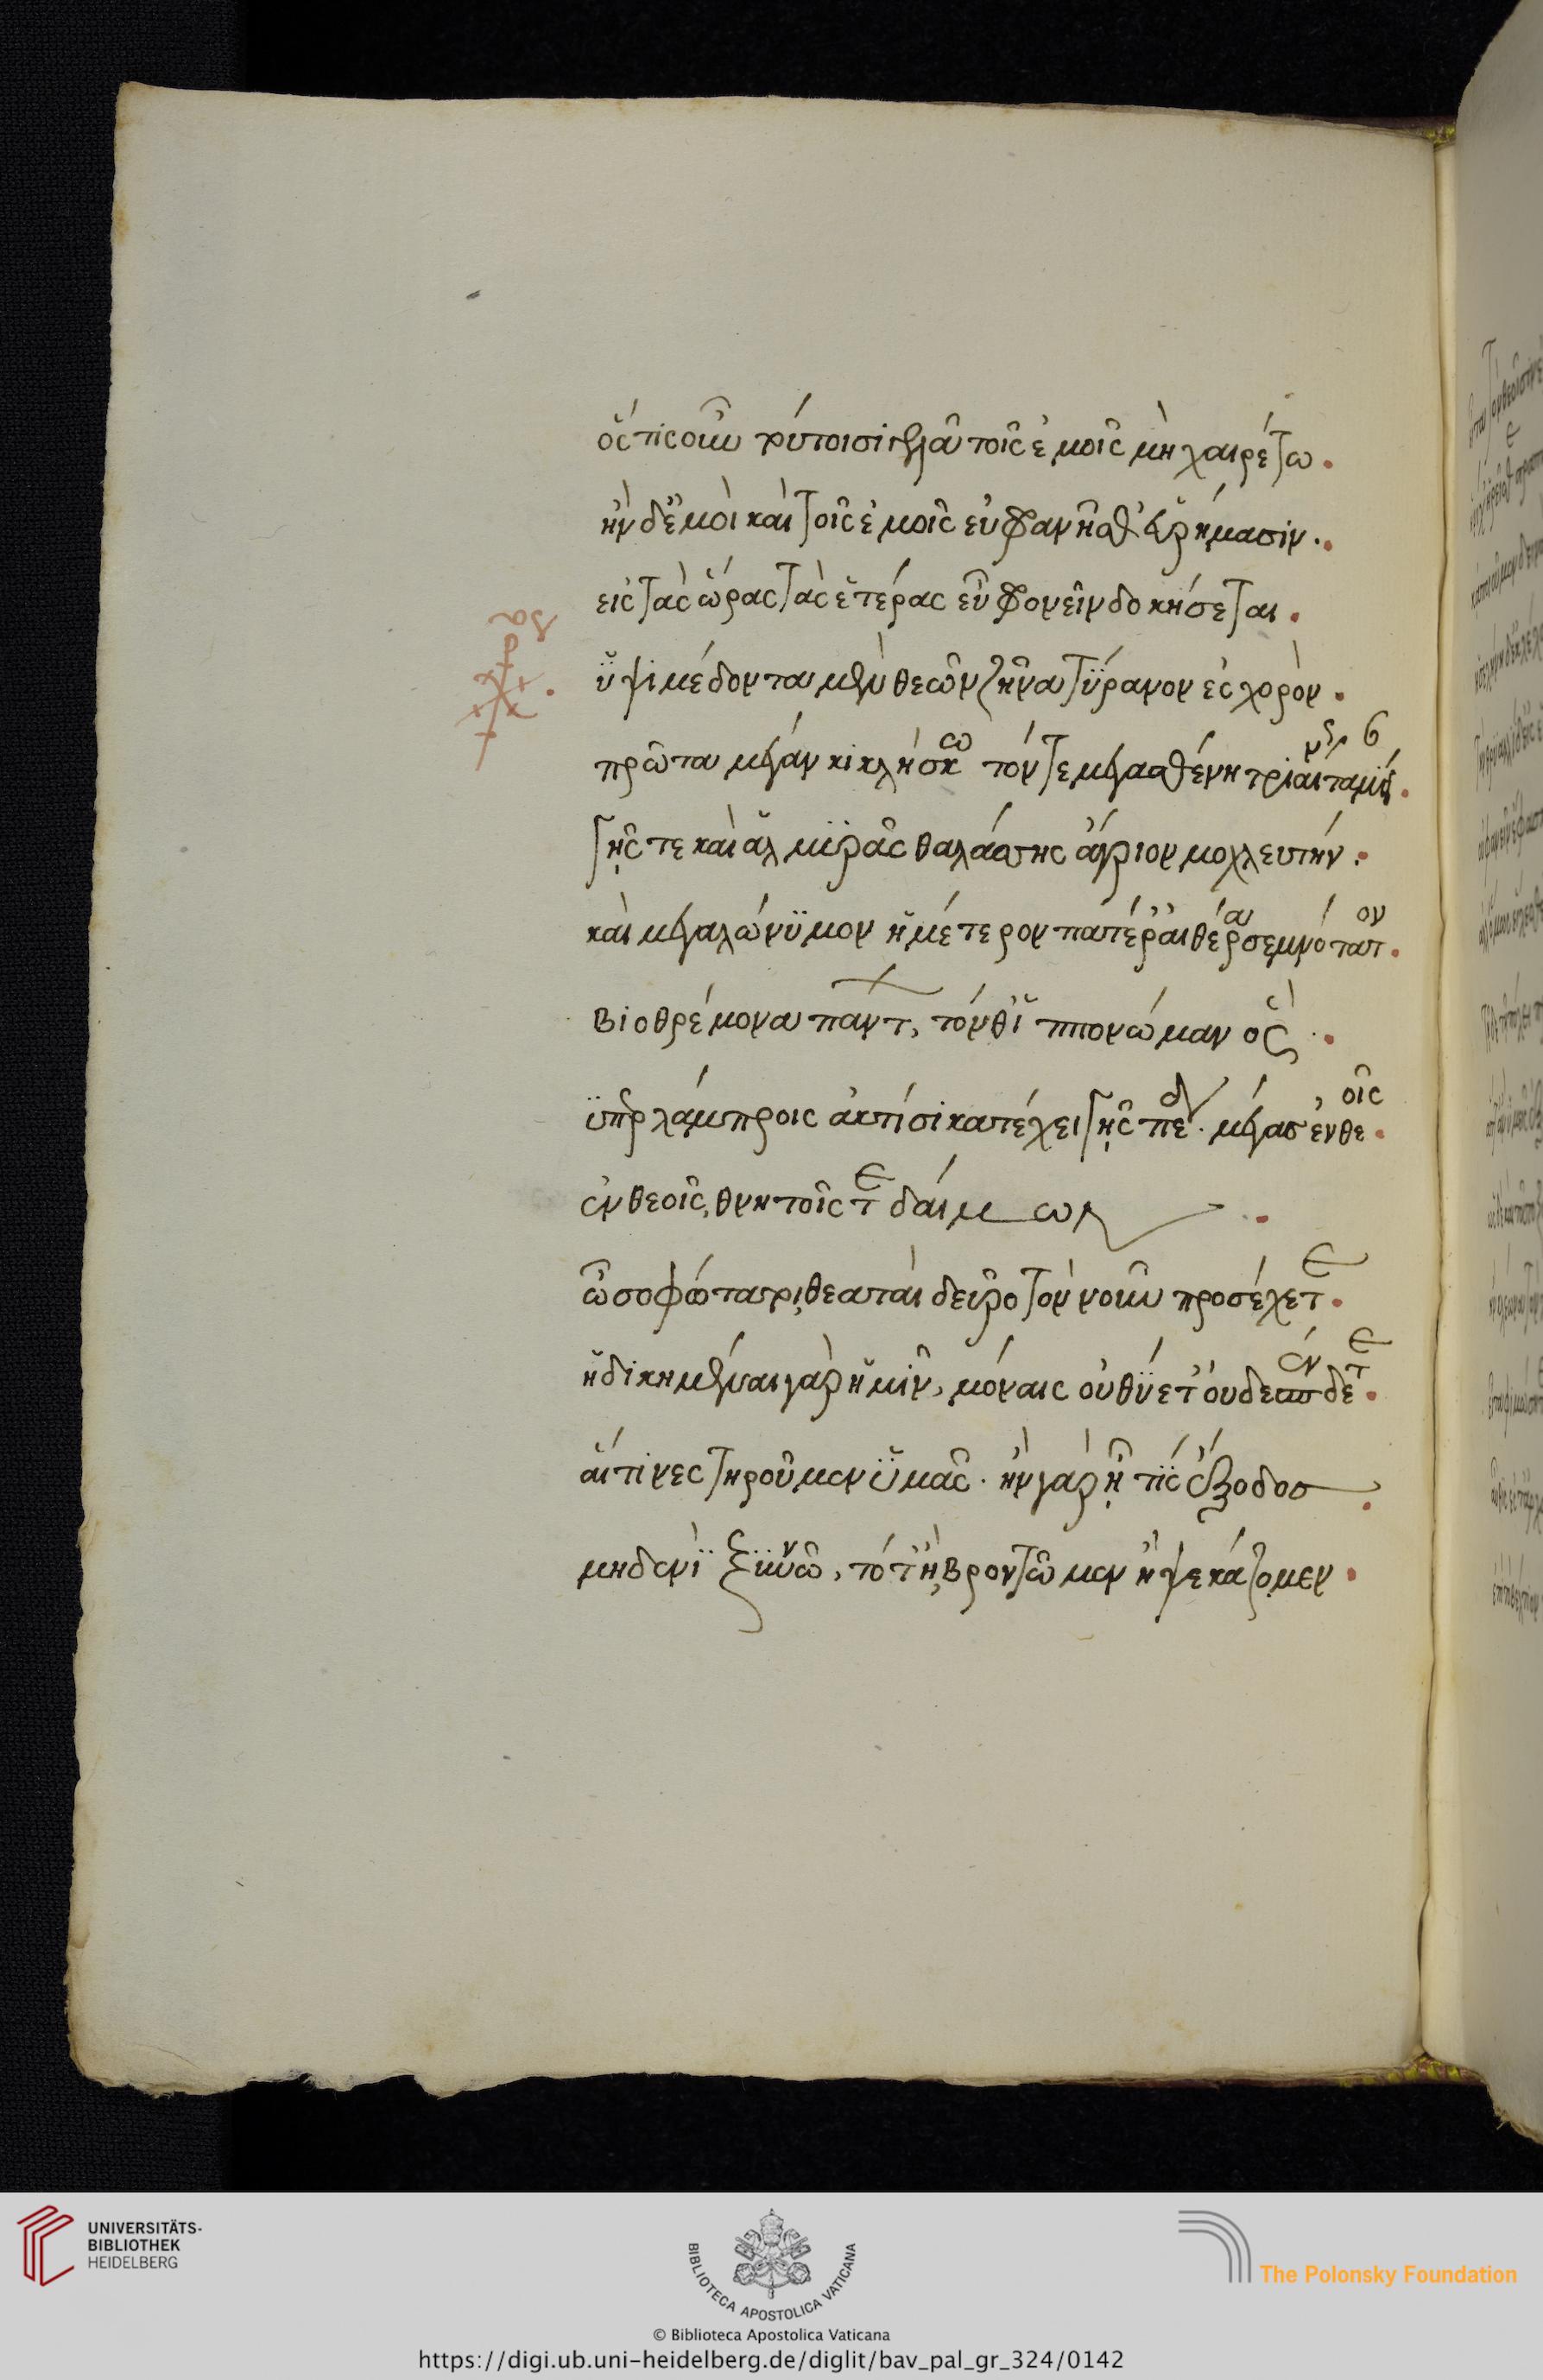 ὅστις οὖν τούτοισι γελᾶ τοῖς ἐμοῖς μὴ χαιρέτω.
ἢν δ' ἐμοὶ καὶ τοῖς ἐμοῖς εὐφρανῆσθ' εὑρήμασιν.
εἰς τὰς ὥρας τὰς ἑτέρας εὖ φρονεῖν δοκήσεται.
ᾠδὴ
ὑψιμέδοντα μὲν θεῶν ζῆνα τύραννον ἐς χορὸν.
πρῶτα μέγαν κικλήσκω τόν τε μεγασθένη τριαίνης ταμίαν.
γῆς τε καὶ ἁλμυρᾶς θαλάσσης ἄγριον μοχλευτήν.
καὶ μεγαλώνυμον ἡμέτερον πατέρ' αἰθέρα σεμνότατον.
βιοθρέμμονα πάντων, τόν θ' ἱππονώμαν ὃς
ὑπερλάμπροις ἀκτίσι κατέχει γῆς πέδον. μέγας ἐν θεοῖς.
ἐν θεοῖς, θνητοῖς τε δαίμων
ὦ σοφώτατοι θεαταὶ δεῦρο τὸν νοῦν προσέχετε.
ἠδικημέναι γὰρ ἡμῖν, μόναις οὐ θύετ' οὐδε σπένδετε.
αἵτινες τηροῦμεν ὑμᾶς. ἢν γὰρ ἦ τίς ἔξοδος
μηδενὶ ξὺν νῶ, τότ' ἢ βροντῶμεν ἢ ψεκάζομεν.
UNIVERSITÄTS-
BIBLIOTHEK
HEIDELBERG
BIBLIOTECA APOSTOLICA VATICANA
The Polonsky Foundation
© Biblioteca Apostolica Vaticana
https://digi.ub.uni-heidelberg.de/diglit/bav_pal_gr_324/0142